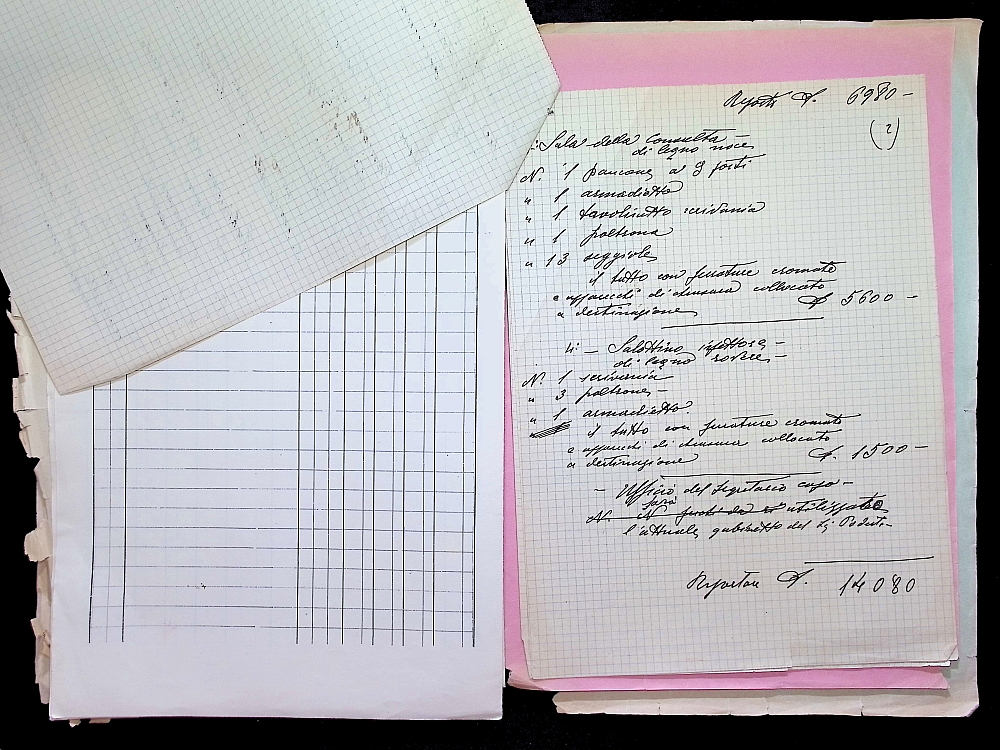 Riporto £. 6980 -
(2)
3: Sala della Consulta -
di legno noce
N. 1 pancone a 9 posti
" 1 armadietto
" 1 tavolinetto scrivania
" 1 poltrona
" 13 seggiole
il tutto con ferrature cromate
e apparecchi di chiusura collocato
a destinazione £ 5600 -
4: - Salottino
di legno rovere -
N. 1 scrivania
" 3 poltrone -
" 1 armadietto.
il tutto con ferrature cromate
e apparecchi di chiusura collocato
a destinazione £. 1500 -
- Ufficio del Segretario capo -
sarà
N. N utilizzato
l'attuale gabinetto del Sig Podestà -
Riportare £. 14080